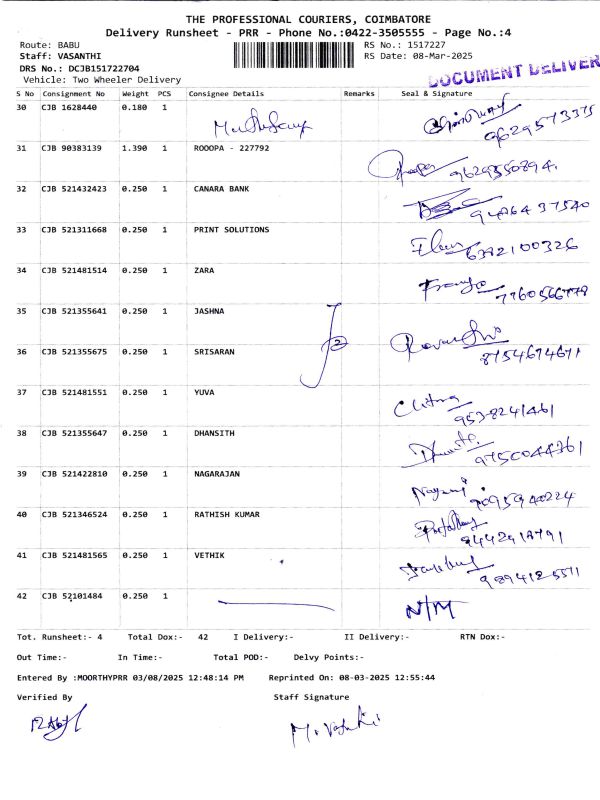 THE PROFESSIONAL COURIERS, COIMBATORE
Delivery Runsheet - PRR - Phone No.:0422-3505555 - Page No.:4
Route: BABU RS No.: 1517227
Staff: VASANTHI RS Date: 08-Mar-2025
DRS No.: DCJB151722704
Vehicle: Two Wheeler Delivery
DOCUMENT DELIVER
S No Consignment No Weight PCS Consignee Details Remarks Seal & Signature
30 CJB 1628440 0.180 1
31 CJB 90383139 1.390 1 ROOOPA - 227792
32 CJB 521432423 0.250 1 CANARA BANK
33 CJB 521311668 0.250 1 PRINT SOLUTIONS 6392100326
34 CJB 521481514 0.250 1 ZARA 7760566778
35 CJB 521355641 0.250 1 JASHNA
36 CJB 521355675 0.250 1 SRISARAN 8754674671
37 CJB 521481551 0.250 1 YUVA
38 CJB 521355647 0.250 1 DHANSITH 9750044361
39 CJB 521422810 0.250 1 NAGARAJAN 9095940224
40 CJB 521346524 0.250 1 RATHISH KUMAR
41 CJB 521481565 0.250 1 VETHIK
42 CJB 52101484 0.250 1 N/M
Tot. Runsheet:- 4 Total Dox:- 42 I Delivery:- II Delivery:- RTN Dox:-
Out Time:- In Time:- Total POD:- Delvy Points:-
Entered By :MOORTHYPRR 03/08/2025 12:48:14 PM Reprinted On: 08-03-2025 12:55:44
Verified By Staff Signature